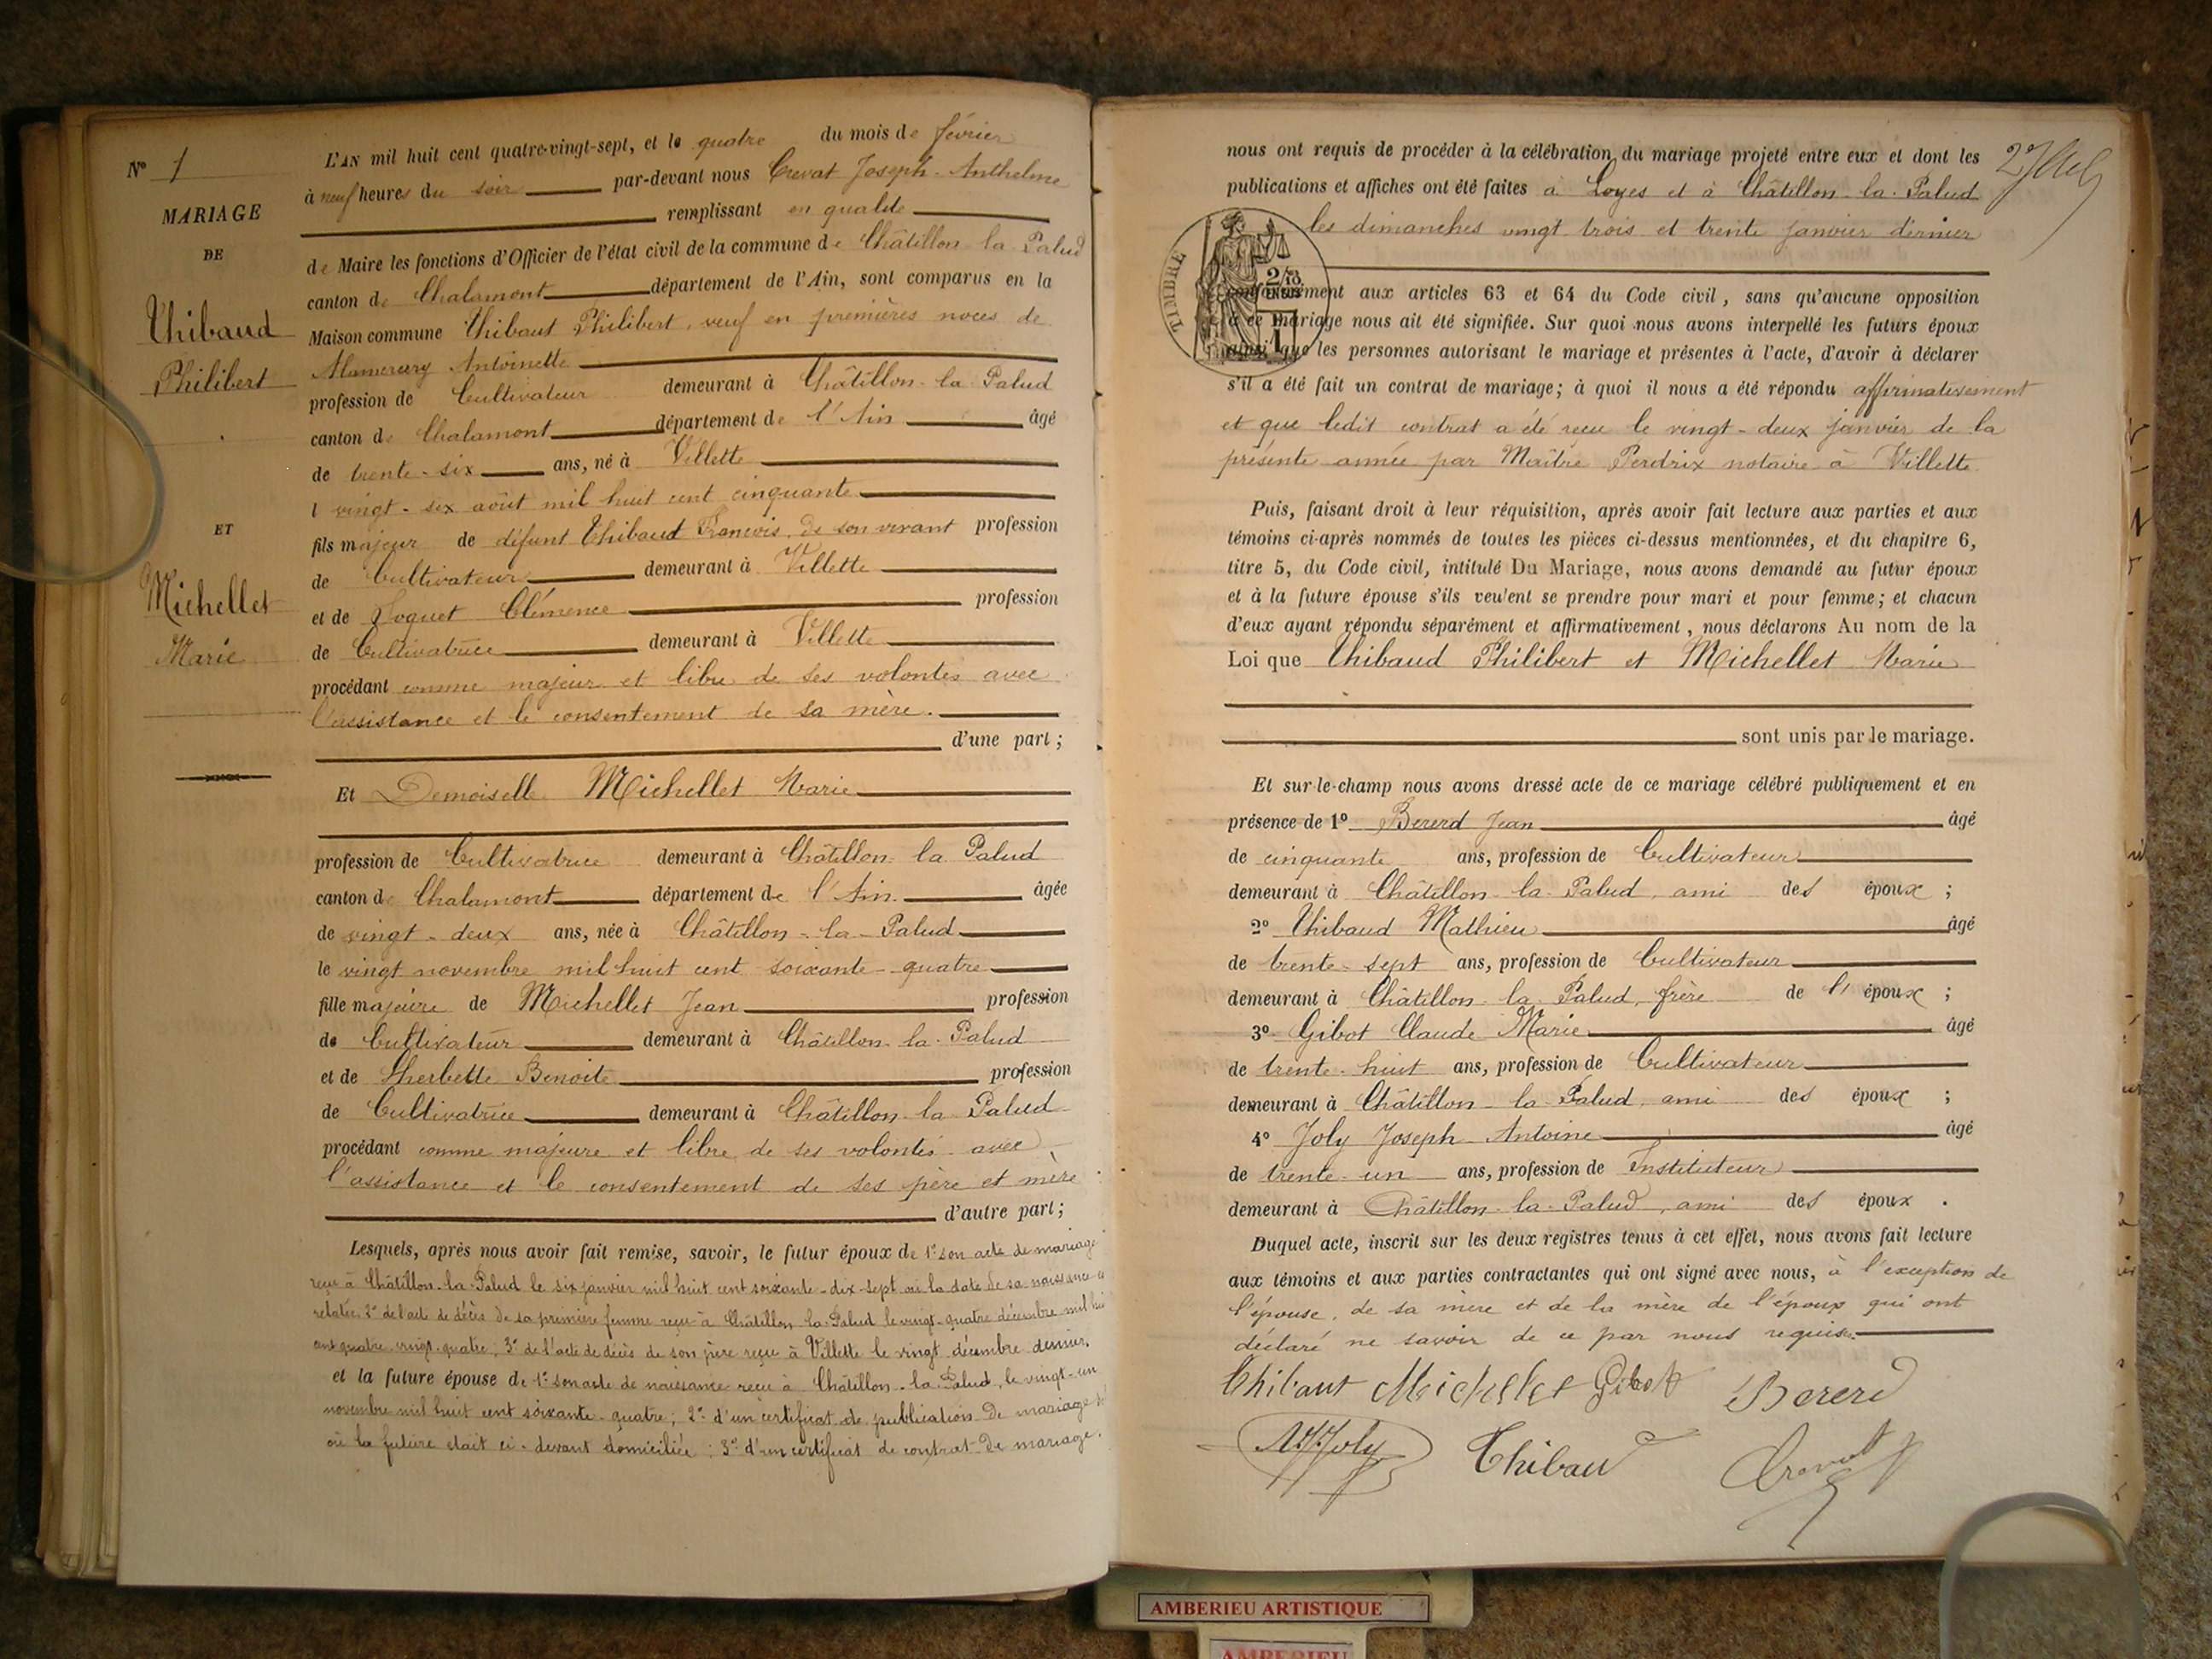 N° 1
MARIAGE
DE
Thibaud
Philibert
ET
Michellet
Marie
L'AN mil huit cent quatre-vingt-sept, et le quatre du mois de février
à neuf heures du soir par-devant nous Crevat Joseph-Anthelme
remplissant en qualité
de Maire les fonctions d'Officier de l'état civil de la commune de Châtillon la Palud
canton de Chalamont département de l'Ain, sont comparus en la
Maison commune Thibaut Philibert, veuf en premières noces de
Antoinette
profession de Cultivateur demeurant à Châtillon-la Palud
canton de Chalamont département de l'Ain âgé
de trente-six ans, né à Villette
l vingt-six août mil huit cent cinquante
fils majeur de défunt Thibaud François, de son vivant profession
de Cultivateur demeurant à Villette
et de Joguet Clémence profession
de Cultivatrice demeurant à Villette
procédant comme majeur et libre de ses volontés avec
l'assistance et le consentement de sa mère.
d'une part ;
Et Demoiselle Michellet Marie
profession de Cultivatrice demeurant à Châtillon-la Palud
canton de Chalamont département de l'Ain. âgée
de vingt-deux ans, née à Châtillon-la-Palud
le vingt novembre mil huit cent soixante-quatre
fille majeure de Michellet Jean profession
de Cultivateur demeurant à Châtillon-la-Palud
et de Sherbette Benoite profession
de Cultivatrice demeurant à Châtillon-la Palud
procédant comme majeure et libre de ses volontés avec
l'assistance et le consentement de ses père et mère
d'autre part ;
Lesquels, après nous avoir fait remise, savoir, le futur époux de 1° son acte de mariage
reçu à Châtillon-la-Palud le six janvier mil huit cent soixante-dix-sept où la date de sa naissance
relatée, 2° de l'acte de décès de sa première femme reçu à Châtillon-la-Palud le vingt-quatre décembre mil hui
cent quatre-vingt-quatre ; 3° de l'acte de décès de son père reçu à Villette le vingt décembre dernier.
et la future épouse de 1° son acte de naissance reçu à Châtillon-la-Palud, le vingt-un
novembre mil huit cent soixante-quatre ; 2° d'un certificat de publication de mariage
où la future était ci-devant domiciliée : 3° d'un certificat de contrat de mariage.
nous ont requis de procéder à la célébration du mariage projeté entre eux et dont les
publications et affiches ont été faites à Loyes et à Châtillon-la-Palud
les dimanches vingt trois et trente janvier dernier
TIMBRE
conformément aux articles 63 et 64 du Code civil, sans qu'aucune opposition
à ce mariage nous ait été signifiée. Sur quoi nous avons interpellé les futurs époux
ainsi que les personnes autorisant le mariage et présentes à l'acte, d'avoir à déclarer
s'il a été fait un contrat de mariage ; à quoi il nous a été répondu affirmativement
et que ledit contrat a été reçu le vingt-deux janvier de la
présente année par Maître Perdrix notaire à Villette
Puis, faisant droit à leur réquisition, après avoir fait lecture aux parties et aux
témoins ci-après nommés de toutes les pièces ci-dessus mentionnées, et du chapitre 6,
titre 5, du Code civil, intitulé Du Mariage, nous avons demandé au futur époux
et à la future épouse s'ils veulent se prendre pour mari et pour femme ; et chacun
d'eux ayant répondu séparément et affirmativement, nous déclarons Au nom de la
Loi que Thibaud Philibert et Michellet Marie
sont unis par le mariage.
Et sur-le-champ nous avons dressé acte de ce mariage célébré publiquement et en
présence de 1° Bererd Jean âgé
de cinquante ans, profession de Cultivateur
demeurant à Châtillon-la-Palud, ami des époux ;
2° Thibaud Mathieu âgé
de trente-sept ans, profession de Cultivateur
demeurant à Châtillon-la-Palud, frère de l'époux ;
3° Gibot Claude Marie âgé
de trente-huit ans, profession de Cultivateur
demeurant à Châtillon-la-Palud, ami des époux ;
4° Joly Joseph-Antoine âgé
de trente-un ans, profession de Instituteur
demeurant à Châtillon-la-Palud, ami des époux.
Duquel acte, inscrit sur les deux registres tenus à cet effet, nous avons fait lecture
aux témoins et aux parties contractantes qui ont signé avec nous, à l'exception de
l'épouse, de sa mère et de la mère de l'époux qui ont
déclaré ne savoir de ce par nous requis.
Thibaut Michellet Gibot Bererd
Joly Thibaud Crevat
AMBERIEU ARTISTIQUE
AMBERIEU